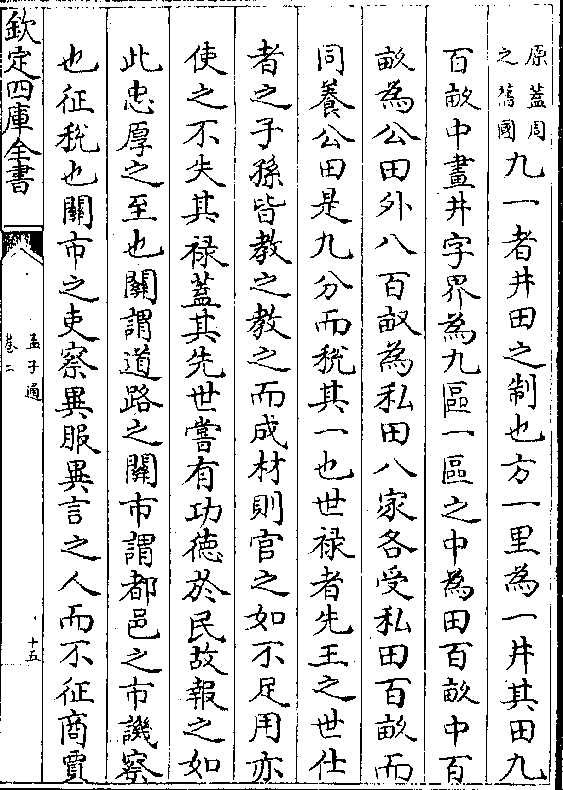 原蓋周
之舊國
九一者井田之制也方一里為一井其田九
百畝中畫井字界為九區一區之中為田百畝中百
畝為公田外八百畝為私田八家各受私田百畝而
同養公田是九分而稅其一也世禄者先王之世仕
者之子孫皆教之教之而成材則官之如不足用亦
使之不失其禄蓋其先世嘗有功德於民故報之如
此忠厚之至也關謂道路之關市謂都邑之市譏察
也征稅也關市之吏察異服異言之人而不征商賈
欽定四庫全書
孟子通
卷二
十五